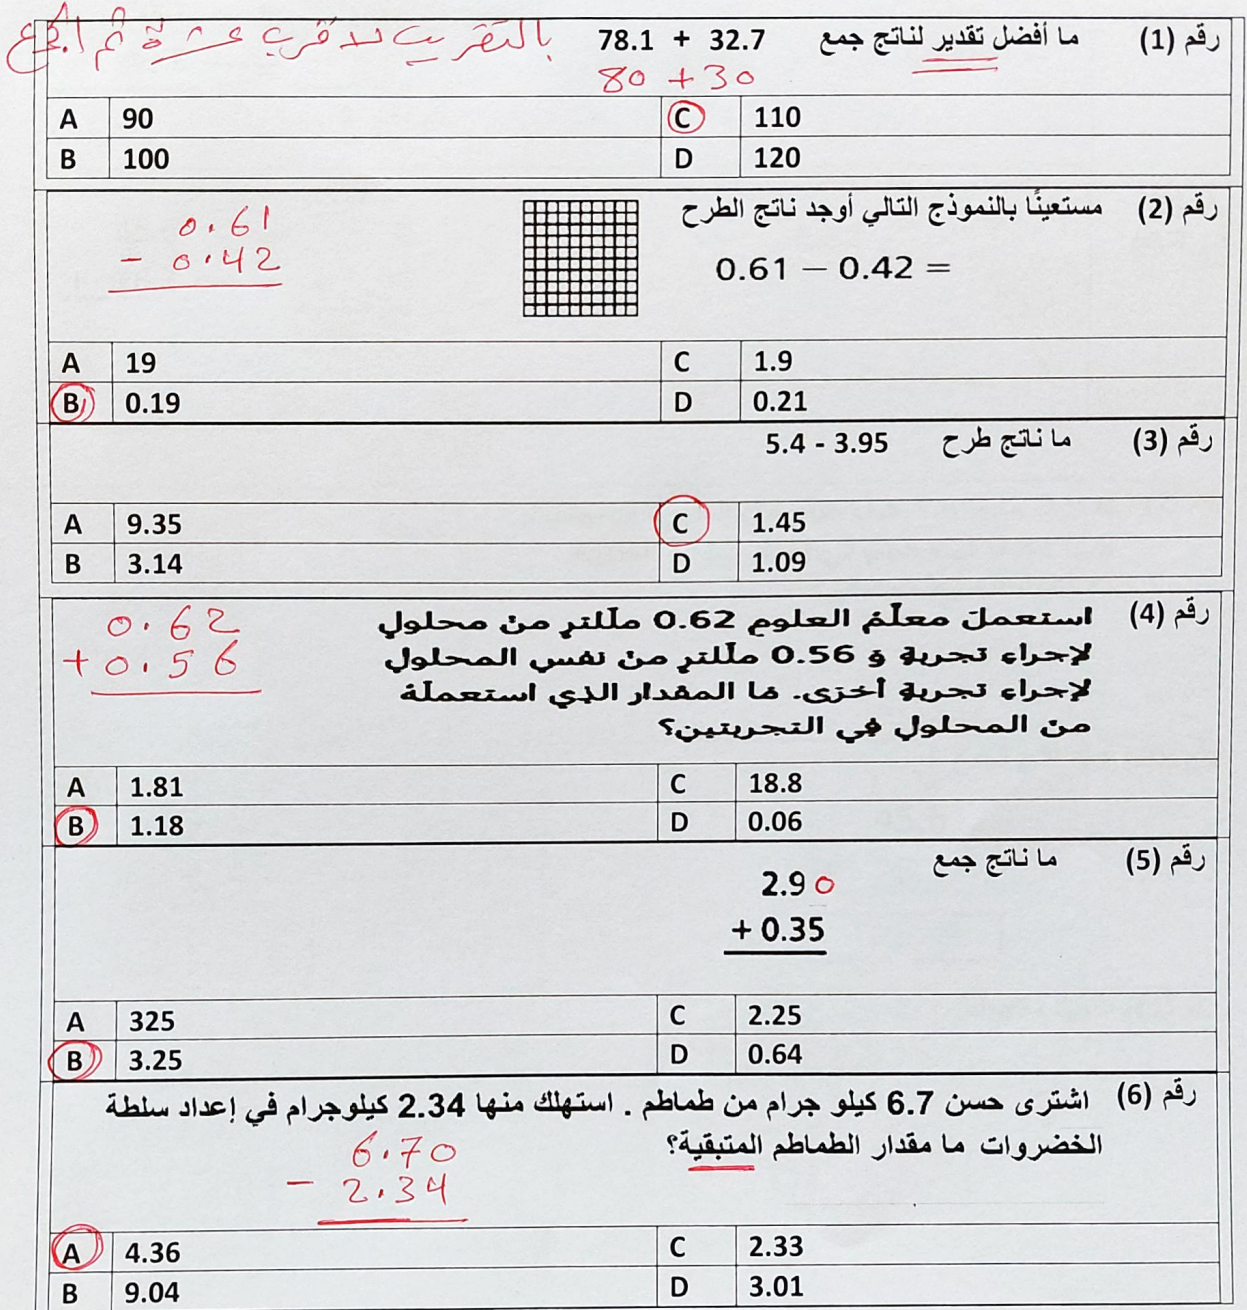 رقم (1) ما أفضل تقدير لناتج جمع 78.1 + 32.7 بالتقريب لأقرب عشرة ثم الجمع
80 + 30
A 90 C 110
B 100 D 120
رقم (2) مستعينًا بالنموذج التالي أوجد ناتج الطرح
0.61 − 0.42 =
0.61
- 0.42
A 19 C 1.9
B 0.19 D 0.21
رقم (3) ما ناتج طرح 5.4 - 3.95
A 9.35 C 1.45
B 3.14 D 1.09
رقم (4) استعملَ معلّمُ العلومِ 0.62 ملّلترٍ منْ محلولٍ
لإجراءِ تجربةٍ وَ 0.56 ملّلترٍ منْ نفسِ المحلولِ
لإجراءِ تجربةٍ أخرَى. مَا المقدارُ الذِي استعملَهُ
منَ المحلولِ فِي التجربتينِ؟
0.62
+ 0.56
A 1.81 C 18.8
B 1.18 D 0.06
رقم (5) ما ناتج جمع
2.90
+ 0.35
A 325 C 2.25
B 3.25 D 0.64
رقم (6) اشترى حسن 6.7 كيلو جرام من طماطم . استهلك منها 2.34 كيلوجرام في إعداد سلطة
الخضروات ما مقدار الطماطم المتبقية؟
6.70
- 2.34
A 4.36 C 2.33
B 9.04 D 3.01